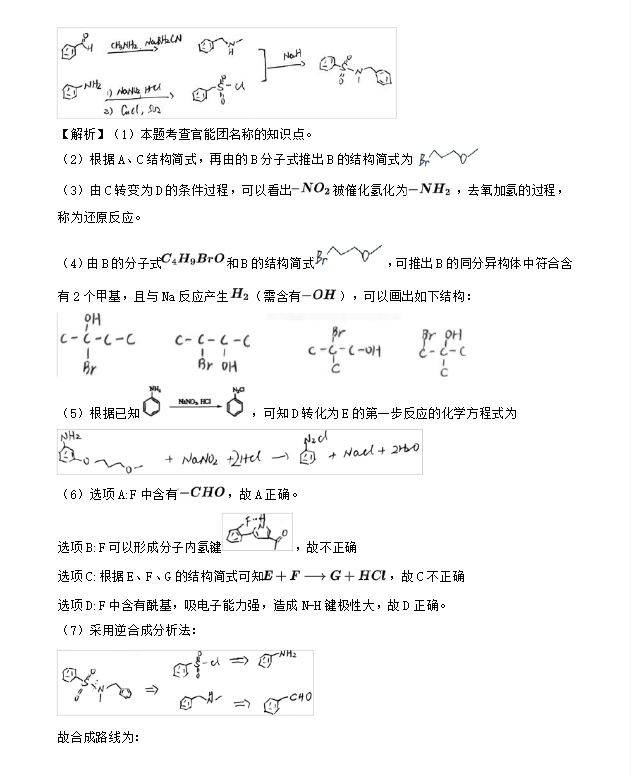 O
H
CH3NH2, NaBH3CN
N
H
NaH
NH2
1) NaNO2, HCl
2) CuCl, SO2
O
S-Cl
O
O
S
O
N
【解析】（1）本题考查官能团名称的知识点。
（2）根据A、C结构简式，再由的B分子式推出B的结构简式为 Br O
（3）由C转变为D的条件过程，可以看出-NO2被催化氢化为-NH2，去氧加氢的过程，
称为还原反应。
（4）由B的分子式C4H9BrO和B的结构简式Br O ，可推出B的同分异构体中符合含
有2个甲基，且与Na反应产生H2（需含有-OH），可以画出如下结构：
OH
C-C-C-C
Br
C-C-C-C
Br OH
Br
C-C-C-OH
C
Br OH
C-C-C
C
（5）根据已知 NH2 NaNO2, HCl N2Cl ，可知D转化为E的第一步反应的化学方程式为
NH2
O O + NaNO2 + 2HCl → N2Cl + NaCl + 2H2O
（6）选项A:F中含有-CHO，故A正确。
选项B:F可以形成分子内氢键 F H O ，故不正确
选项C:根据E、F、G的结构简式可知E+F⟶G+HCl，故C不正确
选项D:F中含有酰基，吸电子能力强，造成N-H键极性大，故D正确。
（7）采用逆合成分析法：
O
S
O
N
⇒
O
S-Cl
O
⇒ NH2
H
N
⇒ CHO
故合成路线为：